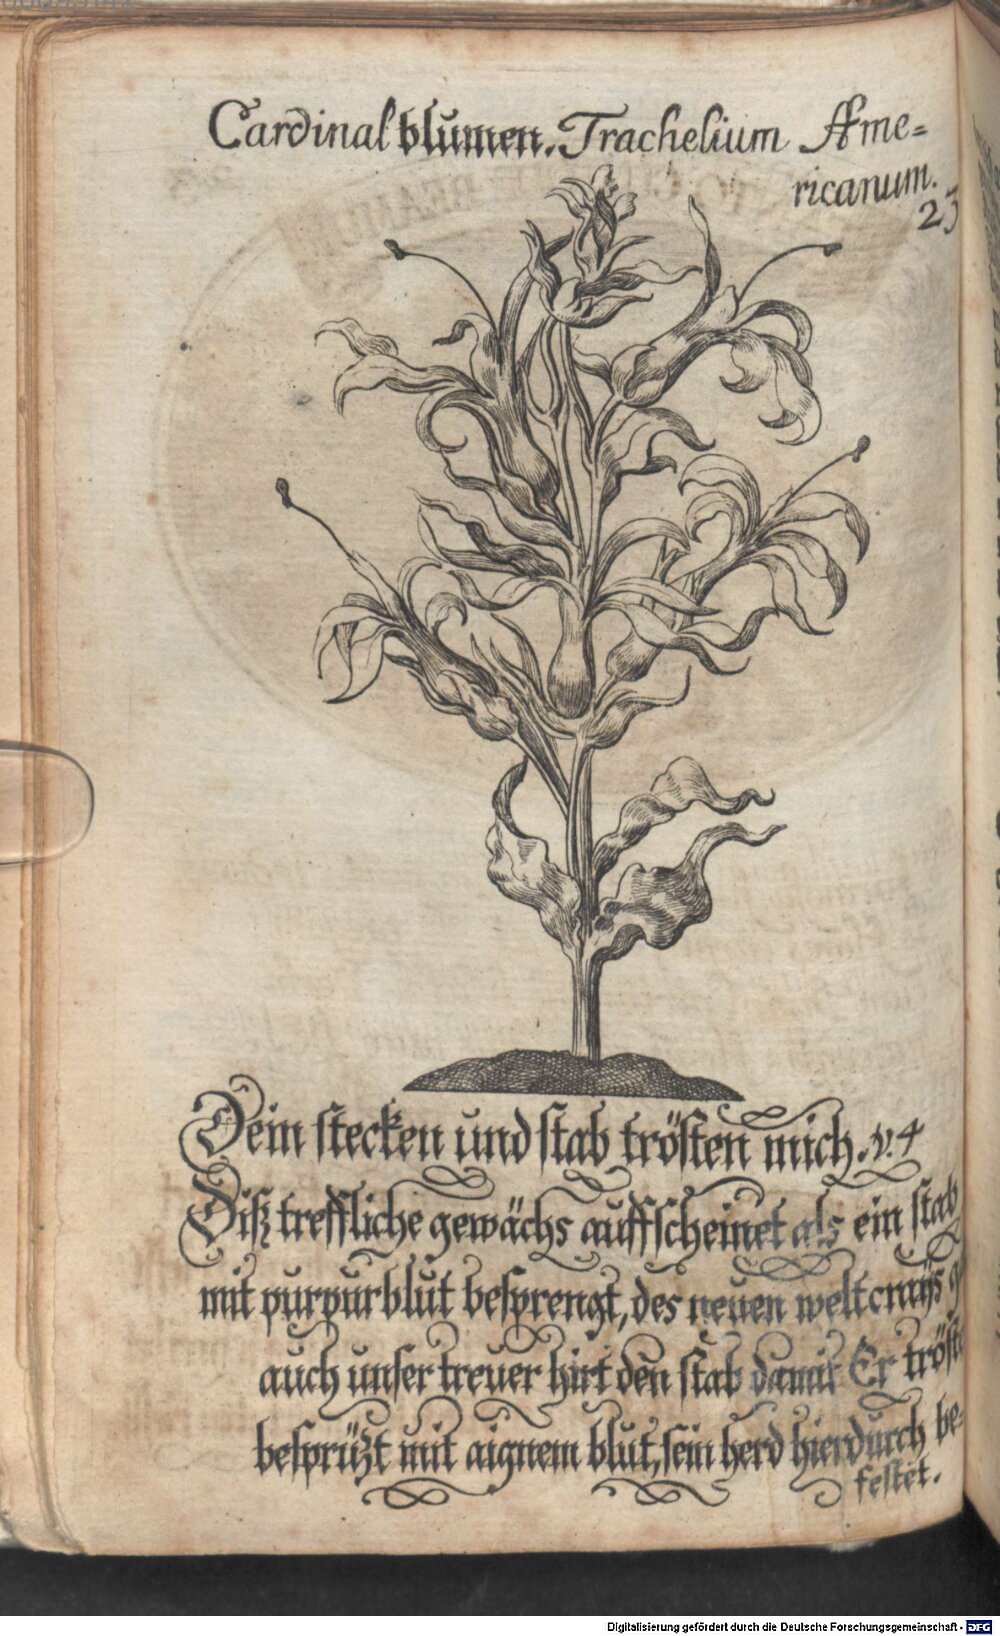 Cardinal blumen. Trachelium Ame=
ricanum.
23
Dein stecken und stab trösten mich. v. 4
Diß treffliche gewächs auffscheinet als ein stab
mit purpurblut besprengt, des neuen weltcrayß
auch unser treuer hirt den stab damit Er tröst
besprüzt mit aignem blut, sein herd hierdurch be=
festet.
Digitalisierung gefördert durch die Deutsche Forschungsgemeinschaft - DFG